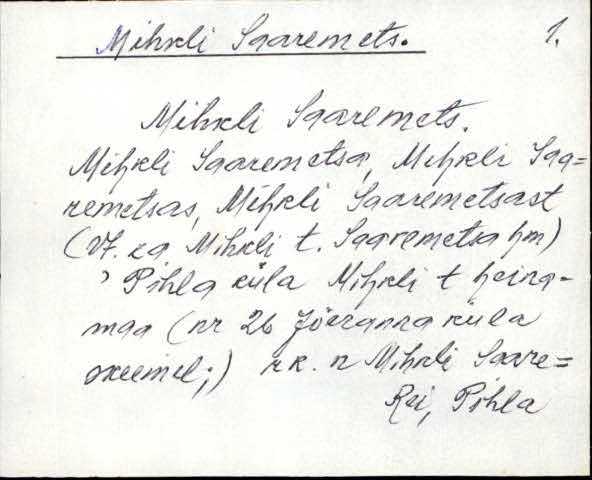 Mihkli Saaremets. 1.
Mihkli Saaremets.
Mihkli Saaremetsa, Mihkli Saa=
remetsas, Mihkli Saaremetsast
(Vt. ka Mihkli t. Saaremetsa hm)
Põhla küla Mihkli t heina-
maa (nr 26 Jõeranna küla
skeemil;) rk. n Mihkli Saare=
Rei, Põhla